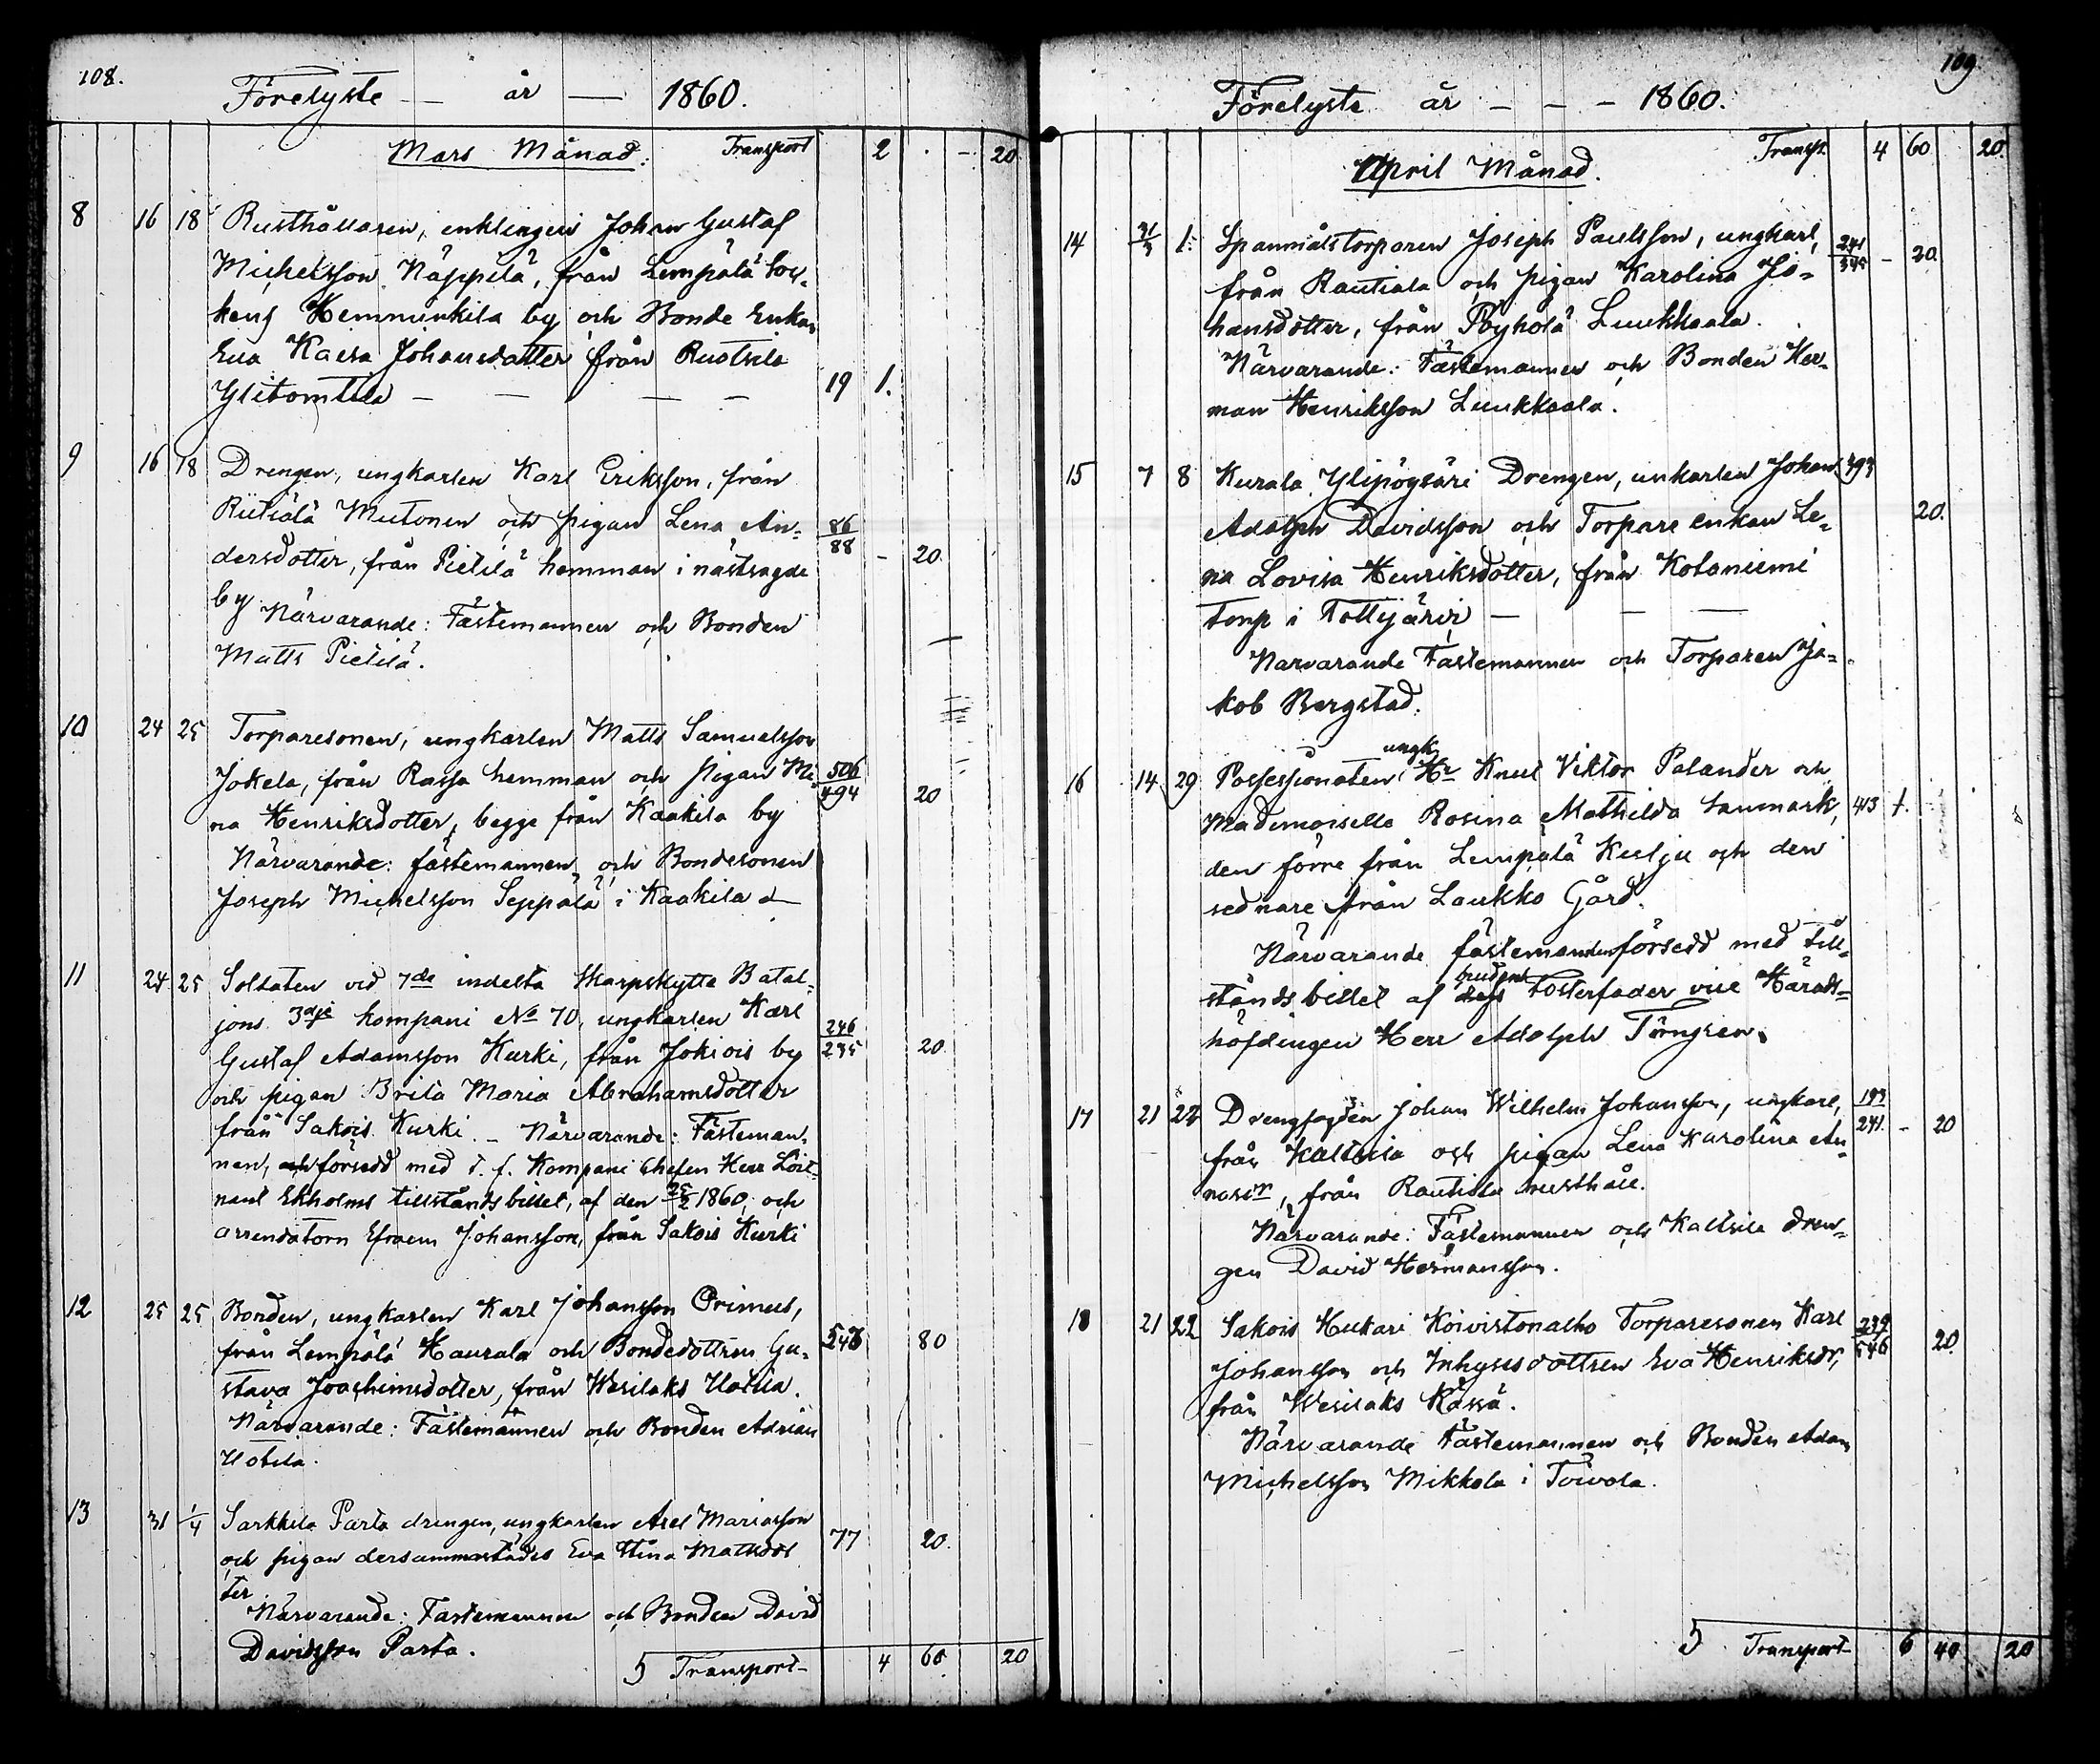 108.
Förelyste — år — 1860.
Mars Månad. Transport 2 . – 20
8 16 18 Rusthållaren, enklingen Johan Gustaf
Michelsson Näppilä, från Lempälä Soc-
kens Hemminkilä by och Bonde Enkan
Eva Kaisa Johansdotter från Ruotsila
Ylitomtila — — — — 19 1.
9 16 18 Drengen, ungkarlen Karl Eriksson, från
Mutonen och pigan Lena An- 86
dersdotter, från Pietilä hemman i nästsagde 88 – 20.
by
Närvarande: Fästemannen och Bonden
Matts Pietilä.
10 24 25 Torparesonen, ungkarlen Matts Samuelsson
Jokela, från Rassa hemman och pigan Mi- 506
na Henriksdotter, begge från Kaakila by 494 20
Närvarande: fästemannen och Bondesonen
Joseph Michelsson Seppälä i Kaakila
11 24 25 Soldaten vid 7de indelta Skarpskytte Batal-
jons 3dje kompani No 70, ungkarlen Karl
Gustaf Adamsson Kurki, från Jokiois by 246 235 20.
och pigan Brita Maria Abrahamsdotter
från Sakois Kurki. – Närvarande: Fästeman-
nen, försedd med t. f. Kompani Chefen Herr Löit-
nant Ekholms tillståndsbillet, af den 25/2 1860, och
arrendatorn Efraem Johansson, från Sakois Kurki
12 25 25 Bonden, ungkarlen Karl Johansson Orimus,
från Lempälä Haurala och Bondedottren Gu- 80
stava Joachimsdotter, från Wesilaks Uotila.
Närvarande: Fästemannen och Bonden Adrian
Uotila.
13 31 1/4 Sarkkila Parta drengen, ungkarlen Axel Mariasson
och pigan dersammastädes Eva Stina Mattsdot 77 20.
ter
Närvarande: Fästemannen och Bonden David
Davidsson Parta.
5 Transport – 4 60 20
109
Förelyste år – – – 1860.
April Månad. Transp. 4 60 20.
14 31/3 1. Spannmålstorparen Joseph Paulsson, ungkarl, 241
från Rautiala och pigan Karolina Jo- 345 – 20.
hansdotter, från Pöyhölä Luukkaala.
Närvarande: Fästemannen och Bonden Her-
man Henriksson Luukkaala.
15 7 8 Kurala Ylipöysäri Drengen, unkarlen Johan 393
Adolph Davidsson och Torpare enkan Le- 20.
na Lovisa Henriksdotter, från Kotaniemi
torp i Tottijärvi — — —
Närvarande Fästemannen och Torparen Ja-
kob Bergstad.
ungk.
16 14 29 Possessionaten Hr Knut Viktor Palander och
Mademoiselle Rosina Mathilda Sanmark, 413 1.
den förre från Lempälä Kulju och den
sednare från Laukko Gård.
Närvarande fästemannen försedd med till-
brudens
ståndsbillet af dess Fosterfader vice Härads-
höfdingen Herr Adolph Törngren.
17 21 22 Drengfogden Johan Wilhelm Johansson, ungkarl, 193
från Kaltsila och pigan Lena Karolina An- 241. – 20
från Rautiala rusthåll.
Närvarande: Fästemannen och Kaltsila dren-
gen David Hermansson.
18 21 22 Sakois Hukari Koivistonalho Torparesonen Karl 239
Johansson och Inhysesdottren Eva Henriksdr, 546 20.
från Wesilaks Kässä.
Närvarande Fästemannen och Bonden Adam
Michelsson Mikkola i Toivola.
5 Transport – 6 40 20